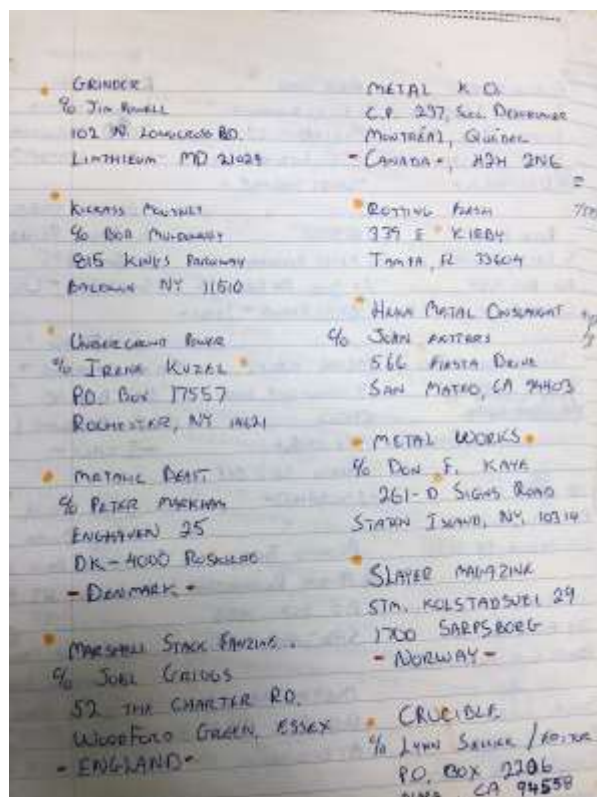 GRINDER
c/o Jim Powell
102 N. Longcross RD.
Linthicum MD 21029
Kickass Monthly
c/o Bob Muldowney
815 Kings Parkway
Baldwin NY 11510
Underground Power
c/o Irena Kuzel
P.O. Box 17557
Rochester, NY 14621
Metallic Beast
c/o Peter Markham
Enghaven 25
DK-4000 Roskilde
- Denmark -
Marshall Stack Fanzine.
c/o Joel Griggs
52 The Charter RD.
Woodford Green, Essex
- ENGLAND -
METAL K.O.
C.P. 297, Succ.
Montréal, Québec
- Canada -, H2H 2N6
Rotting Flesh
339 E Kirby
Tampa, FL 33604
Metal Onslaught
c/o John
566 Fiesta Drive
San Mateo, CA 94403
METAL WORKS
c/o Don F. Kaye
261-D Signs Road
Staten Island, NY, 10314
SLAYER MAGAZINE
STM. KOLSTADSVEI 29
1700 SARPSBORG
- NORWAY -
CRUCIBLE
c/o Lynn / Editor
P.O. BOX 2206
CA 94558